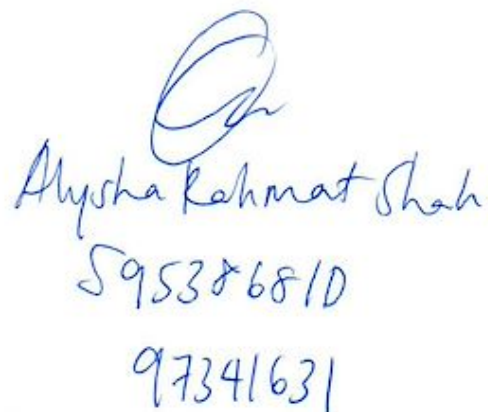 Alysha Rahmat Shah
S9538681D
97341631